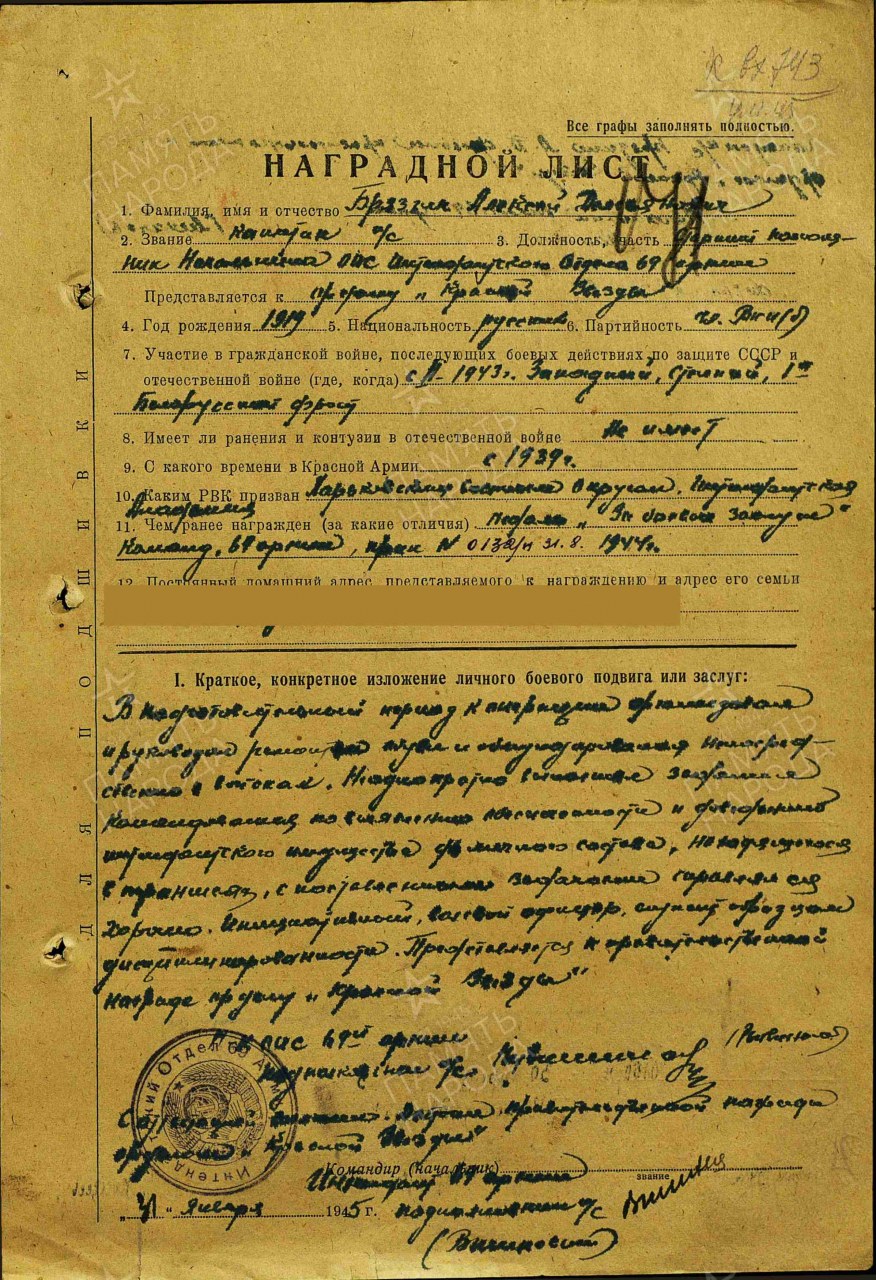 к вх 743
Все графы заполнять полностью.
НАГРАДНОЙ ЛИСТ
1. Фамилия, имя и отчество Алексей
2. Звание Капитан а/с 3. Должность, часть Старший помощ-
ник Начальника ОВС Интендантского Отдела 69 армии
Представляется к ордену „Красной Звезды"
4. Год рождения 1919 5. Национальность русский 6. Партийность чл. ВКП(б)
7. Участие в гражданской войне, последующих боевых действиях по защите СССР и
отечественной войне (где, когда) с II-1943 г. Западный, Степной, 1й
Белорусский фронт
8. Имеет ли ранения и контузии в отечественной войне Не имеет
9. С какого времени в Красной Армии с 1939 г.
10. Каким РВК призван Харьковским округом, Интендантская
Академия
11. Чем ранее награжден (за какие отличия) медаль „За боевые заслуги"
Команд. 69 армии, приказ N 31.8. 1944 г.
12. Постоянный домашний адрес представляемого к награждению и адрес его семьи
ДЛЯ ПОДШИВКИ
I. Краткое, конкретное изложение личного боевого подвига или заслуг:
В подготовительный период к операции организовал
и руководил ремонтом обуви и обмундирования непосред-
ственно в войсках. Неоднократно выполнял задания
командования по выявлению
интендантского имущества для личного состава, находящегося
в траншеях, с поставленными задачами справлялся
хорошо. Инициативный, волевой офицер, служит образцом
дисциплинированности. Представляется к правительственной
награде ордену „Красной Звезды"
Н-к ОВС 69й армии
подполковник а/с
Достоин правительственной награды
орденом „Красной Звезды"
Командир (начальник)
звание
Интендант 69 армии
„ " Января 1945 г. подполковник а/с
Интенд Отдел 69 А
ПАМЯТЬ НАРОДА